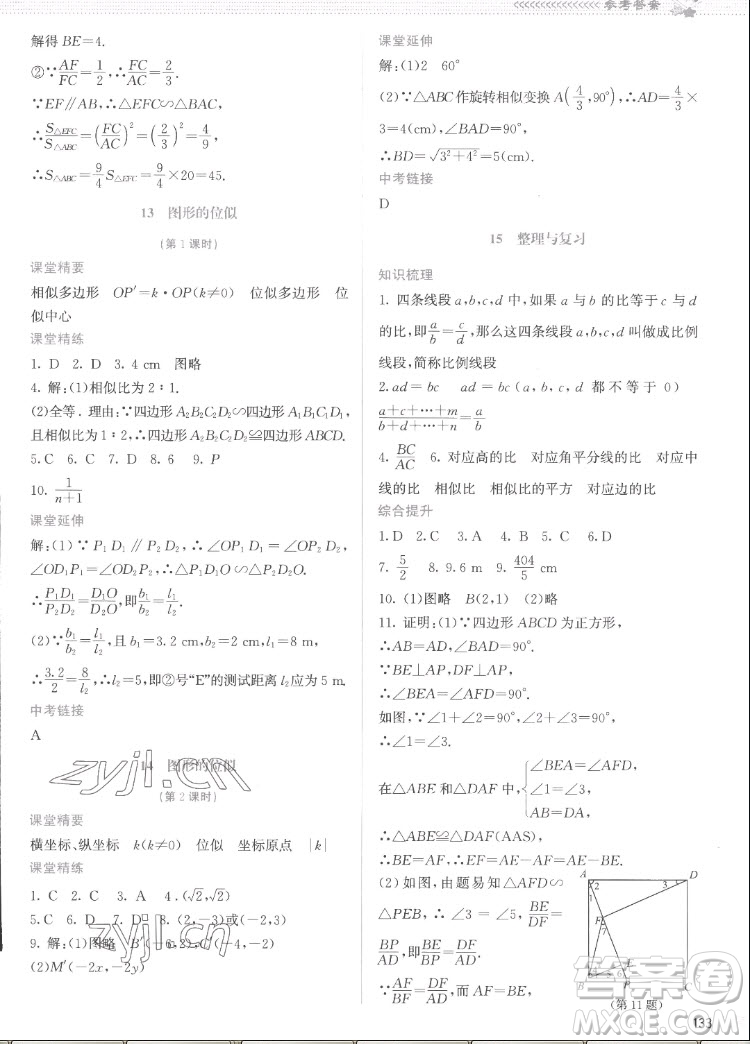 参考答案
解得BE=4.
②∵AF/FC=1/2,∴FC/AC=2/3.
∵EF∥AB,∴△EFC∽△BAC,
∴S△EFC/S△ABC=(FC/AC)²=(2/3)²=4/9,
∴S△ABC=9/4 S△EFC=9/4×20=45.
13 图形的位似
(第1课时)
课堂精要
相似多边形 OP′=k·OP(k≠0) 位似多边形 位
似中心
课堂精练
1. D 2. D 3. 4 cm 图略
4. 解:(1)相似比为2∶1.
(2)全等. 理由:∵四边形A₂B₂C₂D₂∽四边形A₁B₁C₁D₁,
且相似比为1∶2,∴四边形A₂B₂C₂D₂≌四边形ABCD.
5. C 6. C 7. D 8. 6 9. P
10. 1/(n+1)
课堂延伸
解:(1)∵P₁D₁∥P₂D₂,∴∠OP₁D₁=∠OP₂D₂,
∠OD₁P₁=∠OD₂P₂,∴△OP₁D₁∽△OP₂D₂.
∴P₁D₁/P₂D₂=D₁O/D₂O,即b₁/b₂=l₁/l₂.
(2)∵b₁/b₂=l₁/l₂,且b₁=3.2 cm,b₂=2 cm,l₁=8 m,
∴3.2/2=8/l₂,∴l₂=5,即②号“E”的测试距离l₂应为5 m.
中考链接
A
14 图形的位似
(第2课时)
课堂精要
横坐标、纵坐标 k(k≠0) 位似 坐标原点 |k|
课堂精练
1. C 2. C 3. A 4. (√2,√2)
5. C 6. D 7. D 8. (2,-3)或(-2,3)
9. 解:(1)图略 B′(-6,2),C′(-4,-2)
(2)M′(-2x,-2y)
课堂延伸
解:(1)2 60°
(2)∵△ABC作旋转相似变换A(4/3,90°),∴AD=4/3×
3=4(cm),
∴BD=√(3²+4²)=5(cm).
中考链接
D
15 整理与复习
知识梳理
1. 四条线段a,b,c,d中,如果a与b的比等于c与d
的比,即a/b=c/d,那么这四条线段a,b,c,d叫做成比例
线段,简称比例线段
2. ad=bc ad=bc(a,b,c,d都不等于0)
(a+c+…+m)/(b+d+…+n)=a/b
4. BC/AC 6. 对应高的比 对应角平分线的比 对应中
线的比 相似比 相似比的平方 对应边的比
综合提升
1. D 2. C 3. A 4. C 5. C 6. D
7. 5/2 8. 9.6 m 9. 404/5 cm
10. (1)图略 B(2,1) (2)略
11. 证明:(1)∵四边形ABCD为正方形,
∴AB=AD,∠BAD=90°.
∵BE⊥AP,DF⊥AP,
∴∠BEA=∠AFD=90°.
如图,∵∠1+∠2=90°,∠2+∠3=90°,
∴∠1=∠3.
在△ABE和△DAF中,{∠BEA=∠AFD, ∠1=∠3, AB=DA,
∴△ABE≌△DAF(AAS),
∴BE=AF,∴EF=AE-AF=AE-BE.
(2)如图,由题易知△AFD∽
△PEB,∴∠3=∠5,BE/DF=
BP/AD,即BE/BP=DF/AD.
∵AF/BF=DF/AD,而AF=BE,
A D 2 3 1 F 7 B P C
(第11题)
133
zyjl.cn
zyjl.cn
答案卷
MXQE.COM